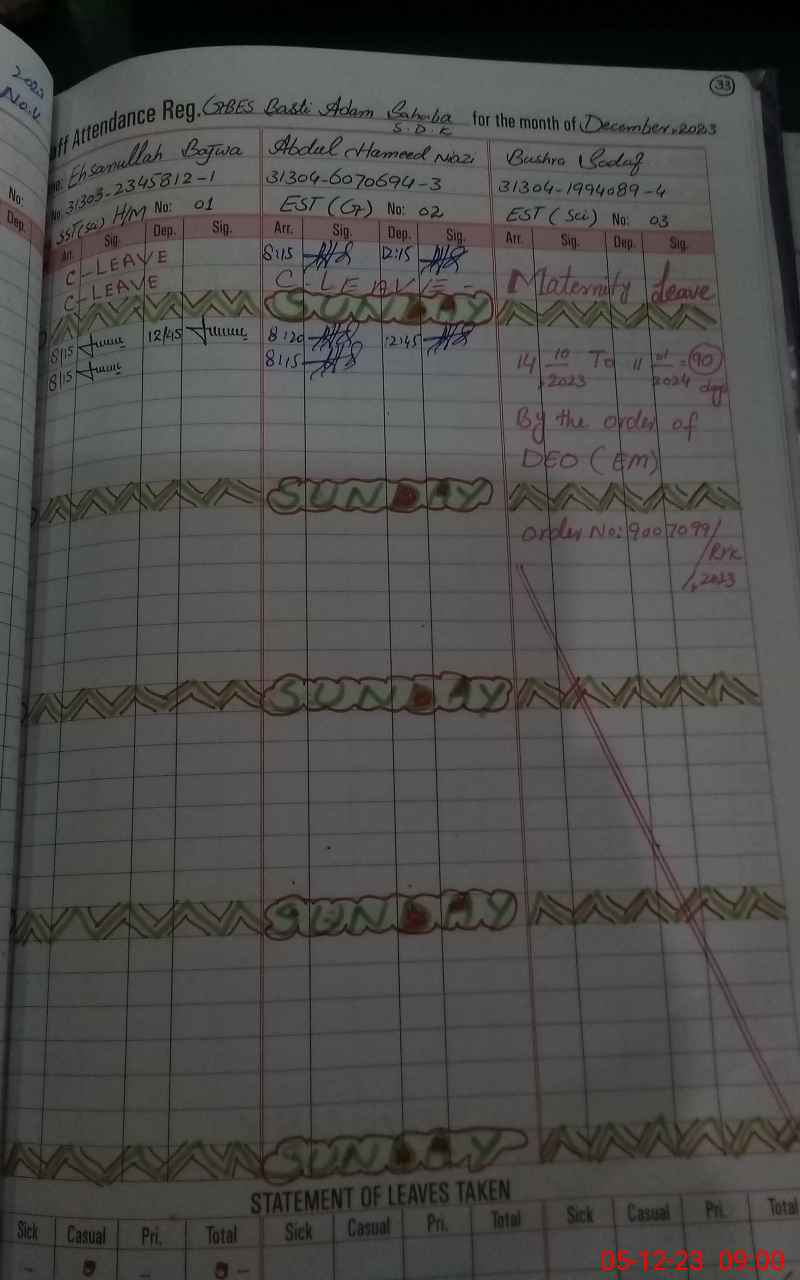 33
2023
No. 4
No:
Dep.
ff Attendance Reg. GBES Basti Adam Sahaba S.D.K for the month of December, 2023
Ehsanullah Bajwa Abdul Hameed Niazi Bushra Sadaf
No. 31303-2345812-1 31304-6070694-3 31304-1994089-4
SST(sci) H/M No: 01 EST (G) No: 02 EST (Sci) No: 03
Arr. Sig. Dep. Sig. Arr. Sig. Dep. Sig. Arr. Sig. Dep. Sig.
C-LEAVE 8:15 12:15
C-LEAVE C-LEAVE- Maternity Leave
SUNDAY
8/15 12/45 8:20 12:45
8/15 8:15 14 10/2023 To 11 01/2024 = 90 days
By the order of
DEO (EM)
SUNDAY
Order No: 9007099/
Ryk
/,2023
SUNDAY
SUNDAY
SUNDAY
STATEMENT OF LEAVES TAKEN
Sick Casual Pri. Total Sick Casual Pri. Total Sick Casual Pri. Total
05-12-23 09:00